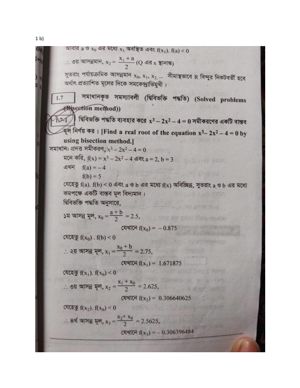 1 b)
আবার a ও x₀ এর মধ্যে x₁ অবস্থিত এবং f(x₁). f(a) < 0
∴ ৩য় আসন্নমান, x₂ = (x₁ + a)/2 (Q এর x স্থানাঙ্ক)
সুতরাং পর্যায়ক্রমিক আসন্নমান x₀, x₁, x₂ ... সীমান্তভাবে R বিন্দুর নিকটবর্তী হবে
অর্থাৎ প্রত্যাশিত মূলের দিকে সমকেন্দ্রাভিমুখী।
1.7 সমাধানকৃত সমস্যাবলী (দ্বিবিভক্তি পদ্ধতি) (Solved problems
(Bisection method))
দ্বিবিভক্তি পদ্ধতি ব্যবহার করে x³ – 2x² – 4 = 0 সমীকরণের একটি বাস্তব
মূল নির্ণয় কর। [Find a real root of the equation x³– 2x² – 4 = 0 by
using bisection method.]
সমাধান: প্রদত্ত সমীকরণ, x³ – 2x² – 4 = 0
মনে করি, f(x) = x³ – 2x² – 4 এবং a = 2, b = 3
এখন f(a) = – 4
f(b) = 5
যেহেতু f(a). f(b) < 0 এবং a ও b এর মধ্যে f(x) অবিচ্ছিন্ন, সুতরাং a ও b এর মধ্যে
কমপক্ষে একটি বাস্তব মূল বিদ্যমান।
দ্বিবিভক্তি পদ্ধতি অনুসারে,
১ম আসন্ন মূল, x₀ = (a + b)/2 = 2.5,
যেখানে f(x₀) = – 0.875
যেহেতু f(x₀) . f(b) < 0
∴ ২য় আসন্ন মূল, x₁ = (x₀ + b)/2 = 2.75,
যেখানে f(x₁) = 1.671875
যেহেতু f(x₁). f(x₀) < 0
∴ ৩য় আসন্ন মূল, x₂ = (x₁ + x₀)/2 = 2.625,
যেখানে f(x₂) = 0.306640625
যেহেতু f(x₂). f(x₀) < 0
∴ ৪র্থ আসন্ন মূল, x₃ = (x₂+ x₀)/2 = 2.5625,
যেখানে f(x₃) = – 0.306396484